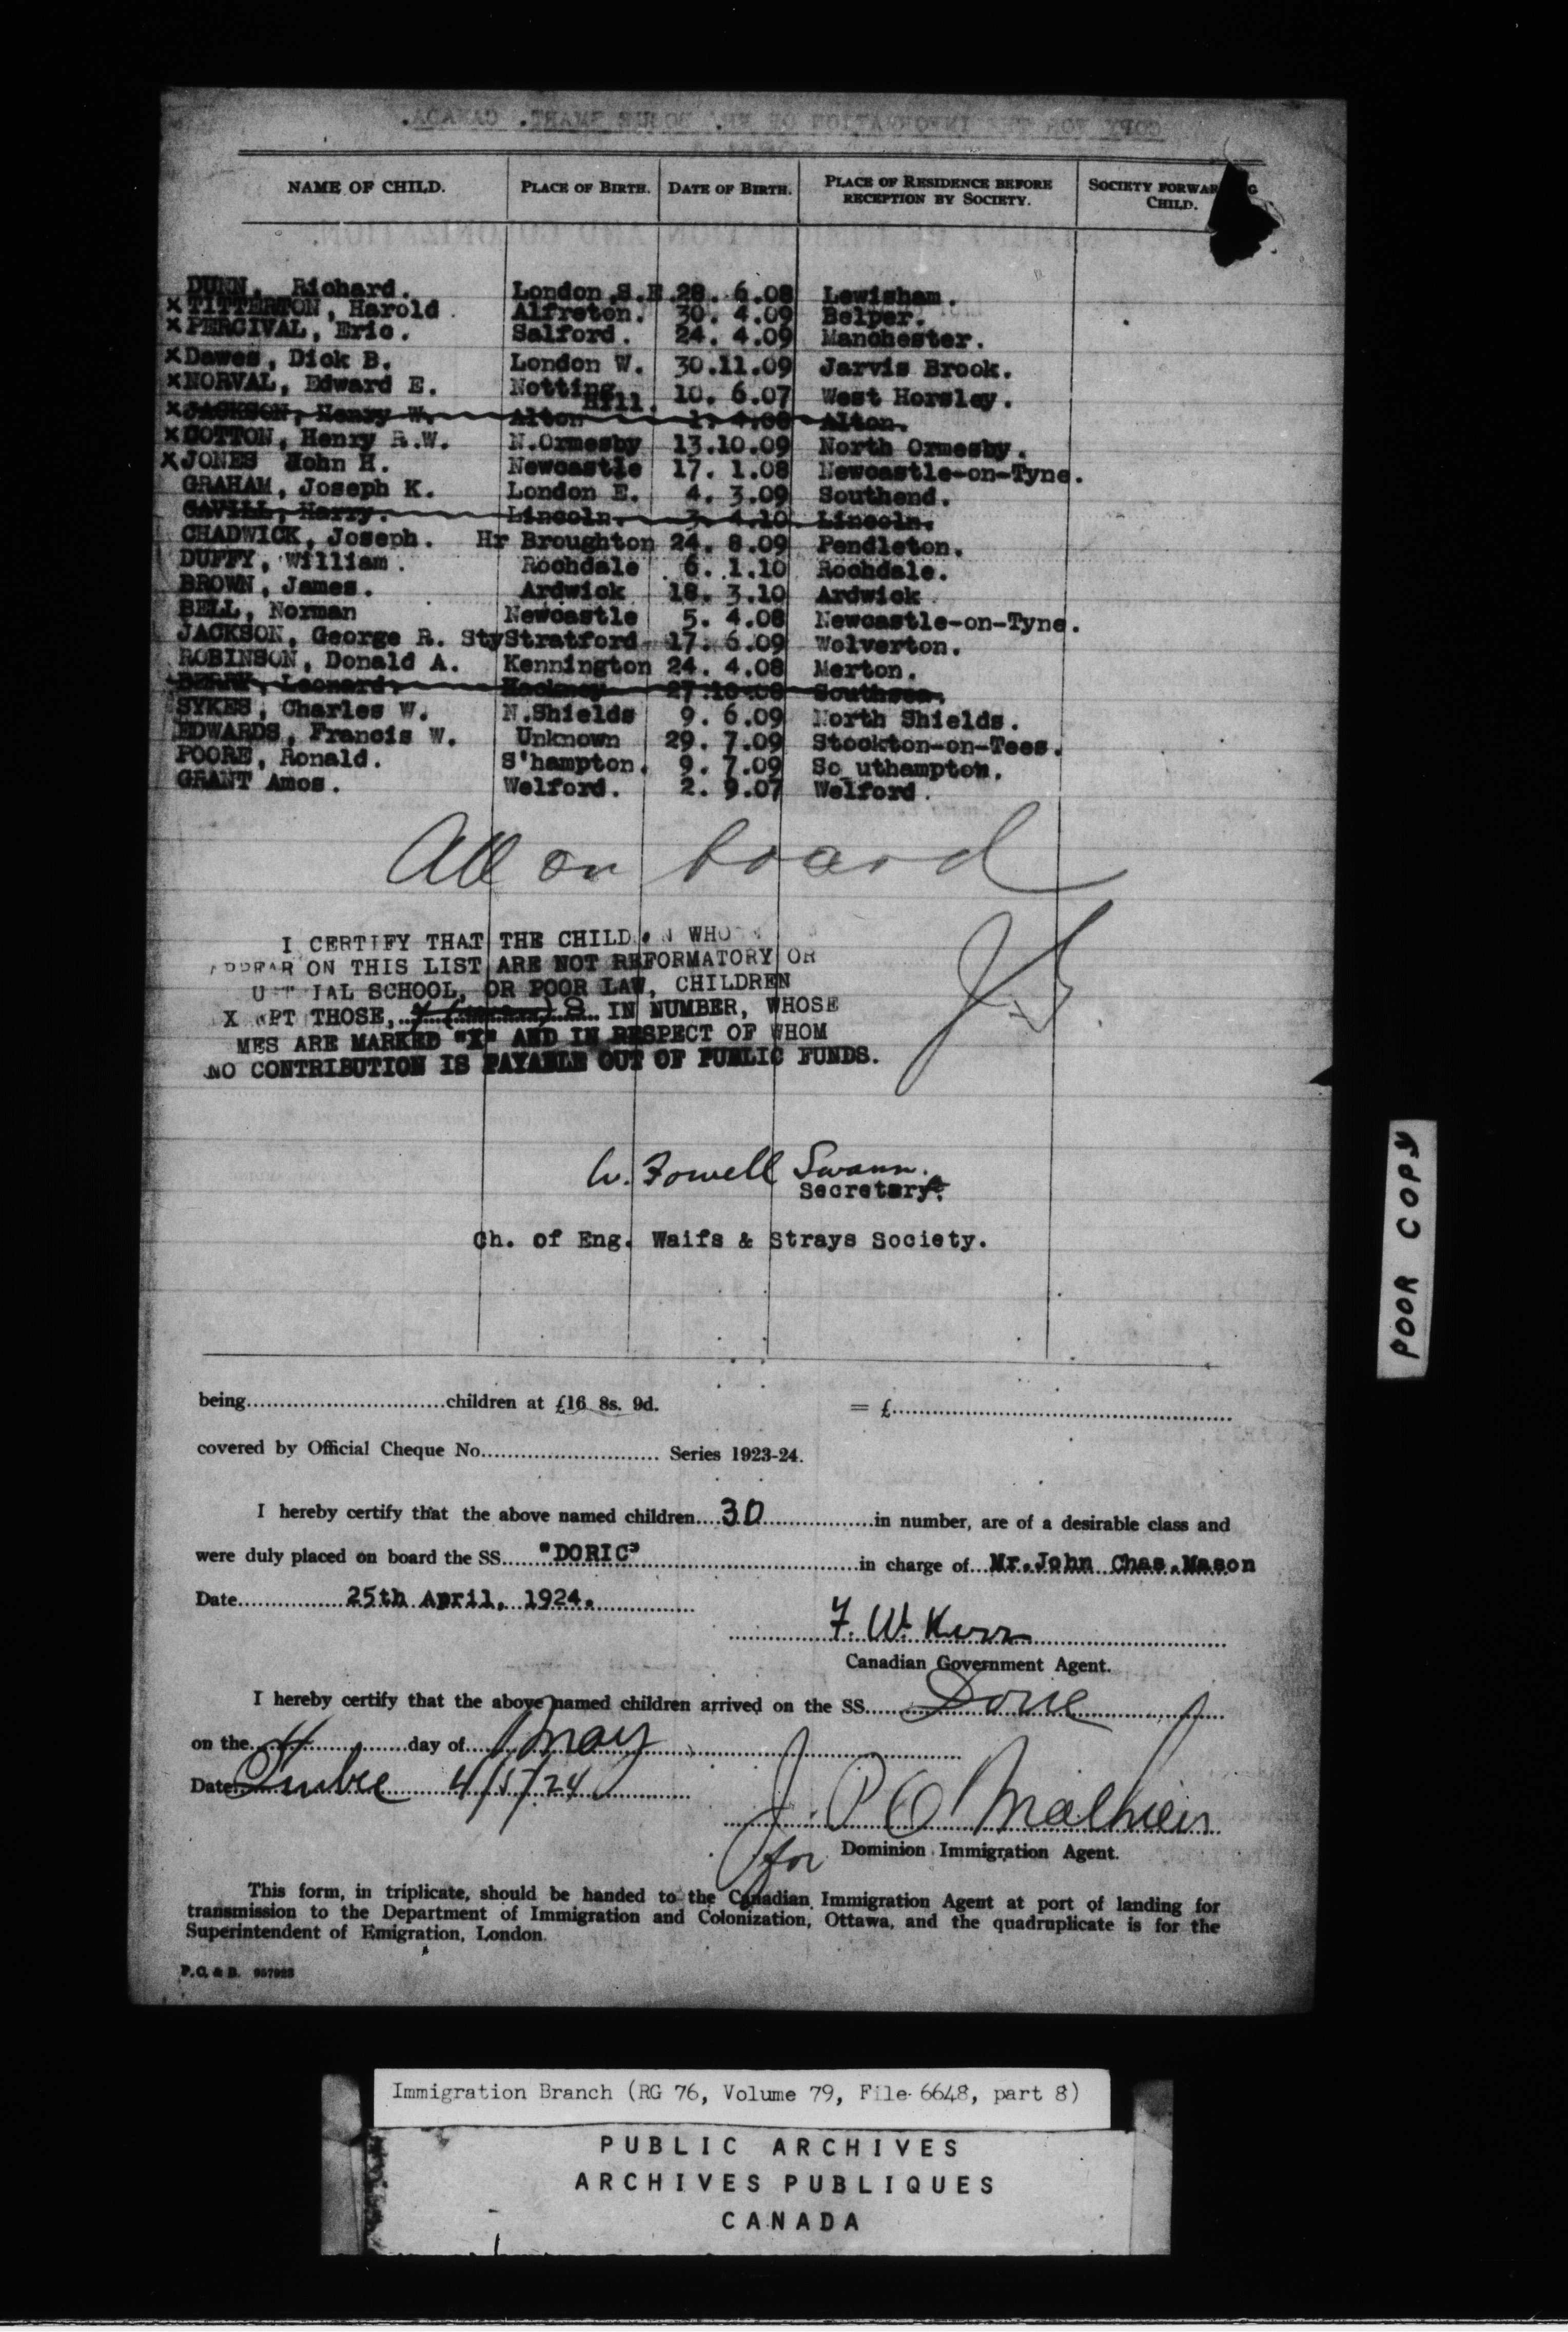 NAME OF CHILD. PLACE OF BIRTH. DATE OF BIRTH. PLACE OF RESIDENCE BEFORE RECEPTION BY SOCIETY. SOCIETY FORWAR G CHILD.
DUNN, Richard. London S.E. 28. 6.08 Lewisham.
X TITTERTON, Harold. Alfreton. 30. 4.09 Belper.
X PERCIVAL, Eric. Salford. 24. 4.09 Manchester.
X Dawes, Dick B. London W. 30.11.09 Jarvis Brook.
X NORVAL, Edward E. Notting Hill. 10. 6.07 West Horsley.
X JACKSON, Henry W. Alton 1. 4.08 Alton.
X COTTON, Henry R.W. N.Ormesby 13.10.09 North Ormesby.
X JONES John H. Newcastle 17. 1.08 Newcastle-on-Tyne.
GRAHAM, Joseph K. London E. 4. 3.09 Southend.
CAVILL, Harry. Lincoln. 3. 4.10 Lincoln.
CHADWICK, Joseph. Hr Broughton 24. 8.09 Pendleton.
DUFFY, William. Rochdale 6. 1.10 Rochdale.
BROWN, James. Ardwick 18. 3.10 Ardwick.
BELL, Norman Newcastle 5. 4.08 Newcastle-on-Tyne.
JACKSON, George R. Sty Stratford 17. 6.09 Wolverton.
ROBINSON, Donald A. Kennington 24. 4.08 Merton.
BERRY, Leonard. Hackney 27.10.08 Southsea.
SYKES, Charles W. N.Shields 9. 6.09 North Shields.
EDWARDS, Francis W. Unknown 29. 7.09 Stockton-on-Tees.
POORE, Ronald. S'hampton. 9. 7.09 So uthampton.
GRANT Amos. Welford. 2. 9.07 Welford.
All on board
I CERTIFY THAT THE CHILD N WHO
APPEAR ON THIS LIST ARE NOT REFORMATORY OR
U T IAL SCHOOL, OR POOR LAW, CHILDREN
X PT THOSE, 8 IN NUMBER, WHOSE
MES ARE MARKED "X" AND IN RESPECT OF WHOM
NO CONTRIBUTION IS PAYABLE OUT OF PUBLIC FUNDS.
W. Fowell Swann.
Secretary.
Ch. of Eng. Waifs & Strays Society.
POOR COPY
being............children at £16 8s. 9d. = £............
covered by Official Cheque No............ Series 1923-24.
I hereby certify that the above named children....30............in number, are of a desirable class and
were duly placed on board the SS......"DORIC"............in charge of...Mr.John Chas.Mason
Date............25th April, 1924.............
F. W. Kerr
Canadian Government Agent.
I hereby certify that the above named children arrived on the SS......Doric............
on the....4............day of....May............
Date Quebec 4/5/24
J. P. O Mathieu
for Dominion Immigration Agent.
This form, in triplicate, should be handed to the Canadian Immigration Agent at port of landing for
transmission to the Department of Immigration and Colonization, Ottawa, and the quadruplicate is for the
Superintendent of Emigration, London.
Immigration Branch (RG 76, Volume 79, File 6648, part 8)
PUBLIC ARCHIVES
ARCHIVES PUBLIQUES
CANADA